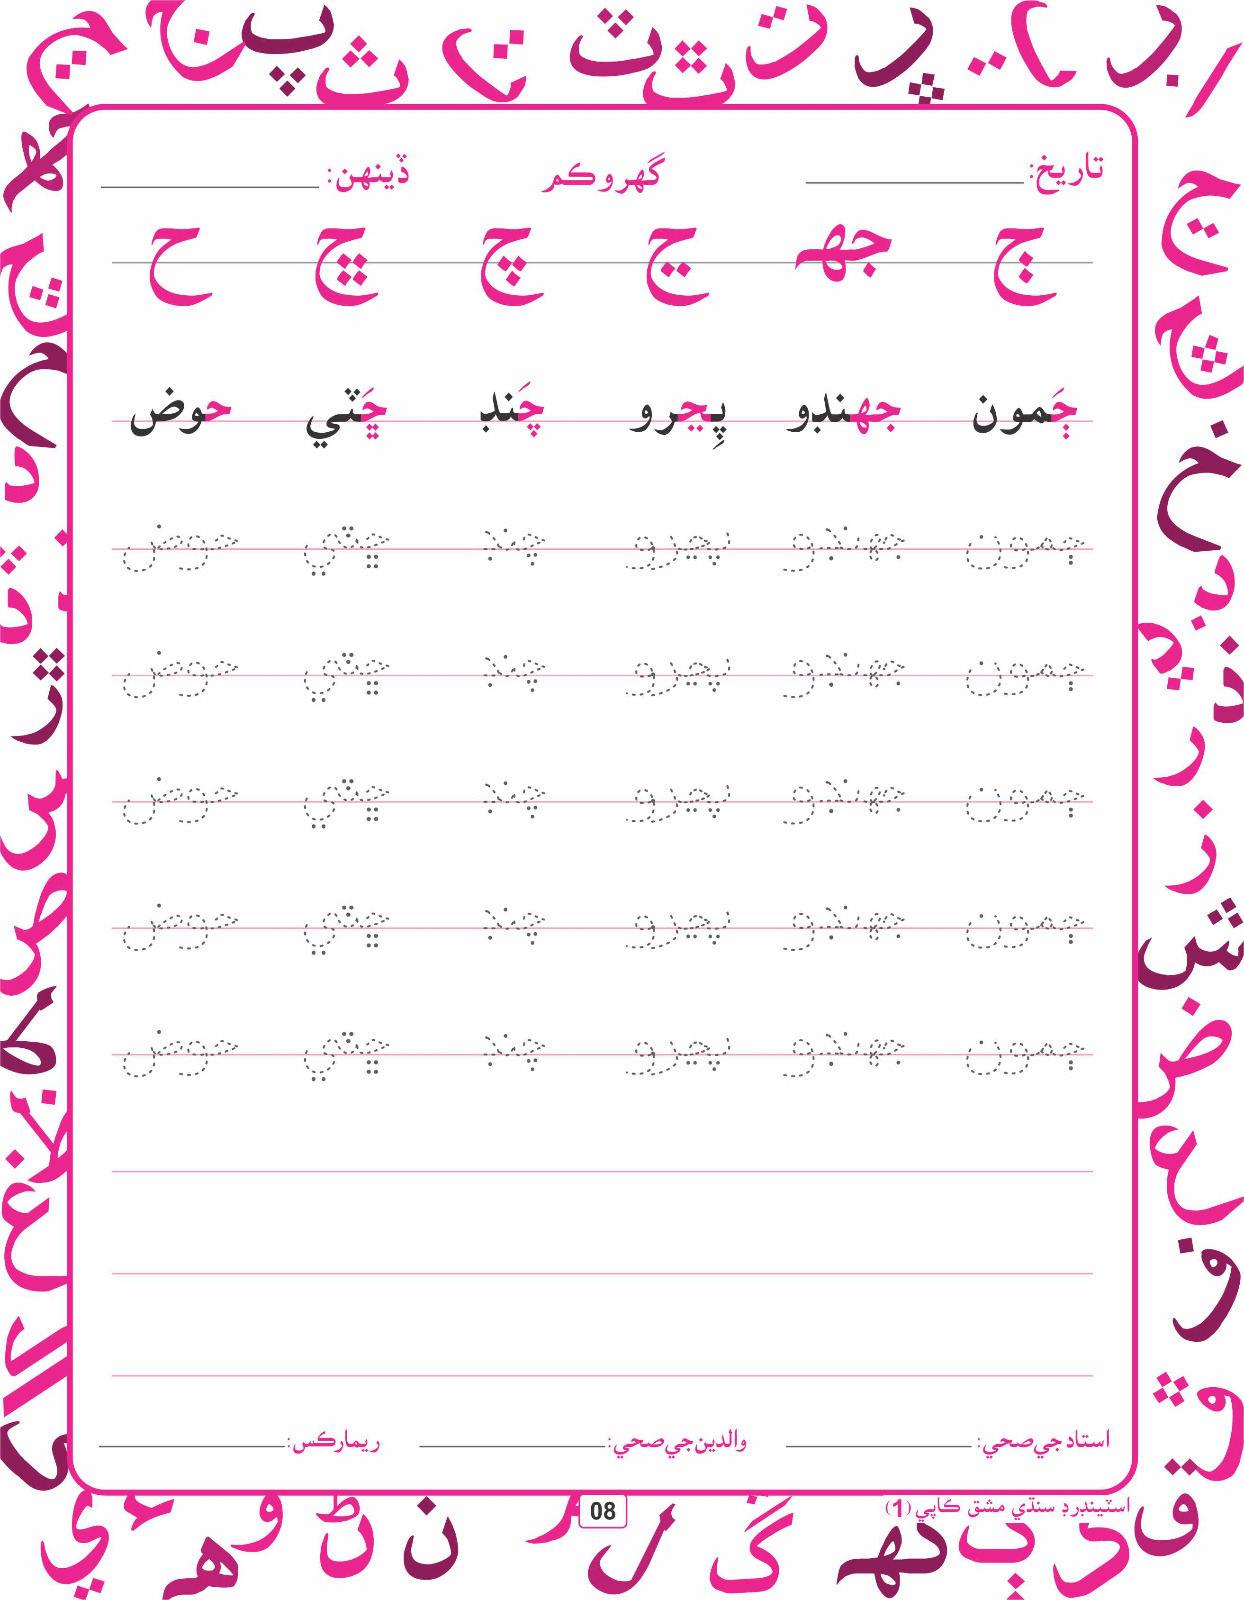 تاريخ: گهرو ڪم ڏينهن:
ڄ جهہ ڃ چ ڇ ح
ڄَمون جهنڊو پِڃرو چَنڊ ڇَٽي حوض
ڄمون جهنڊو پڃرو چنڊ ڇٽي حوض
ڄمون جهنڊو پڃرو چنڊ ڇٽي حوض
ڄمون جهنڊو پڃرو چنڊ ڇٽي حوض
ڄمون جهنڊو پڃرو چنڊ ڇٽي حوض
ڄمون جهنڊو پڃرو چنڊ ڇٽي حوض
استاد جي صحي: والدين جي صحي: ريمارڪس:
اسٽينڊرڊ سنڌي مشق ڪاپي (1)
08